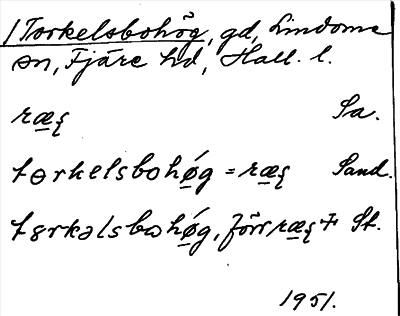 Torkelsbohög, gd, Lindome
sn, Fjäre hd, Hall. l.
ræʂ Sa.
tɵrkelsbohǿg = ræʂ Sand.
tɞrkəlsbohǿg, förr ræʂ St.
1951.